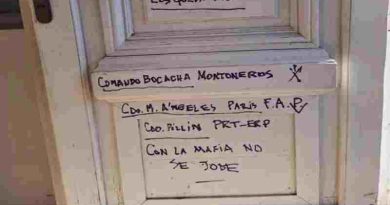 COMANDO BOCACHA MONTONEROS
CDO. M. ANGELES PARIS F.A.P.
CDO. PILLIN PRT-ERP
CON LA MAFIA NO
SE JODE